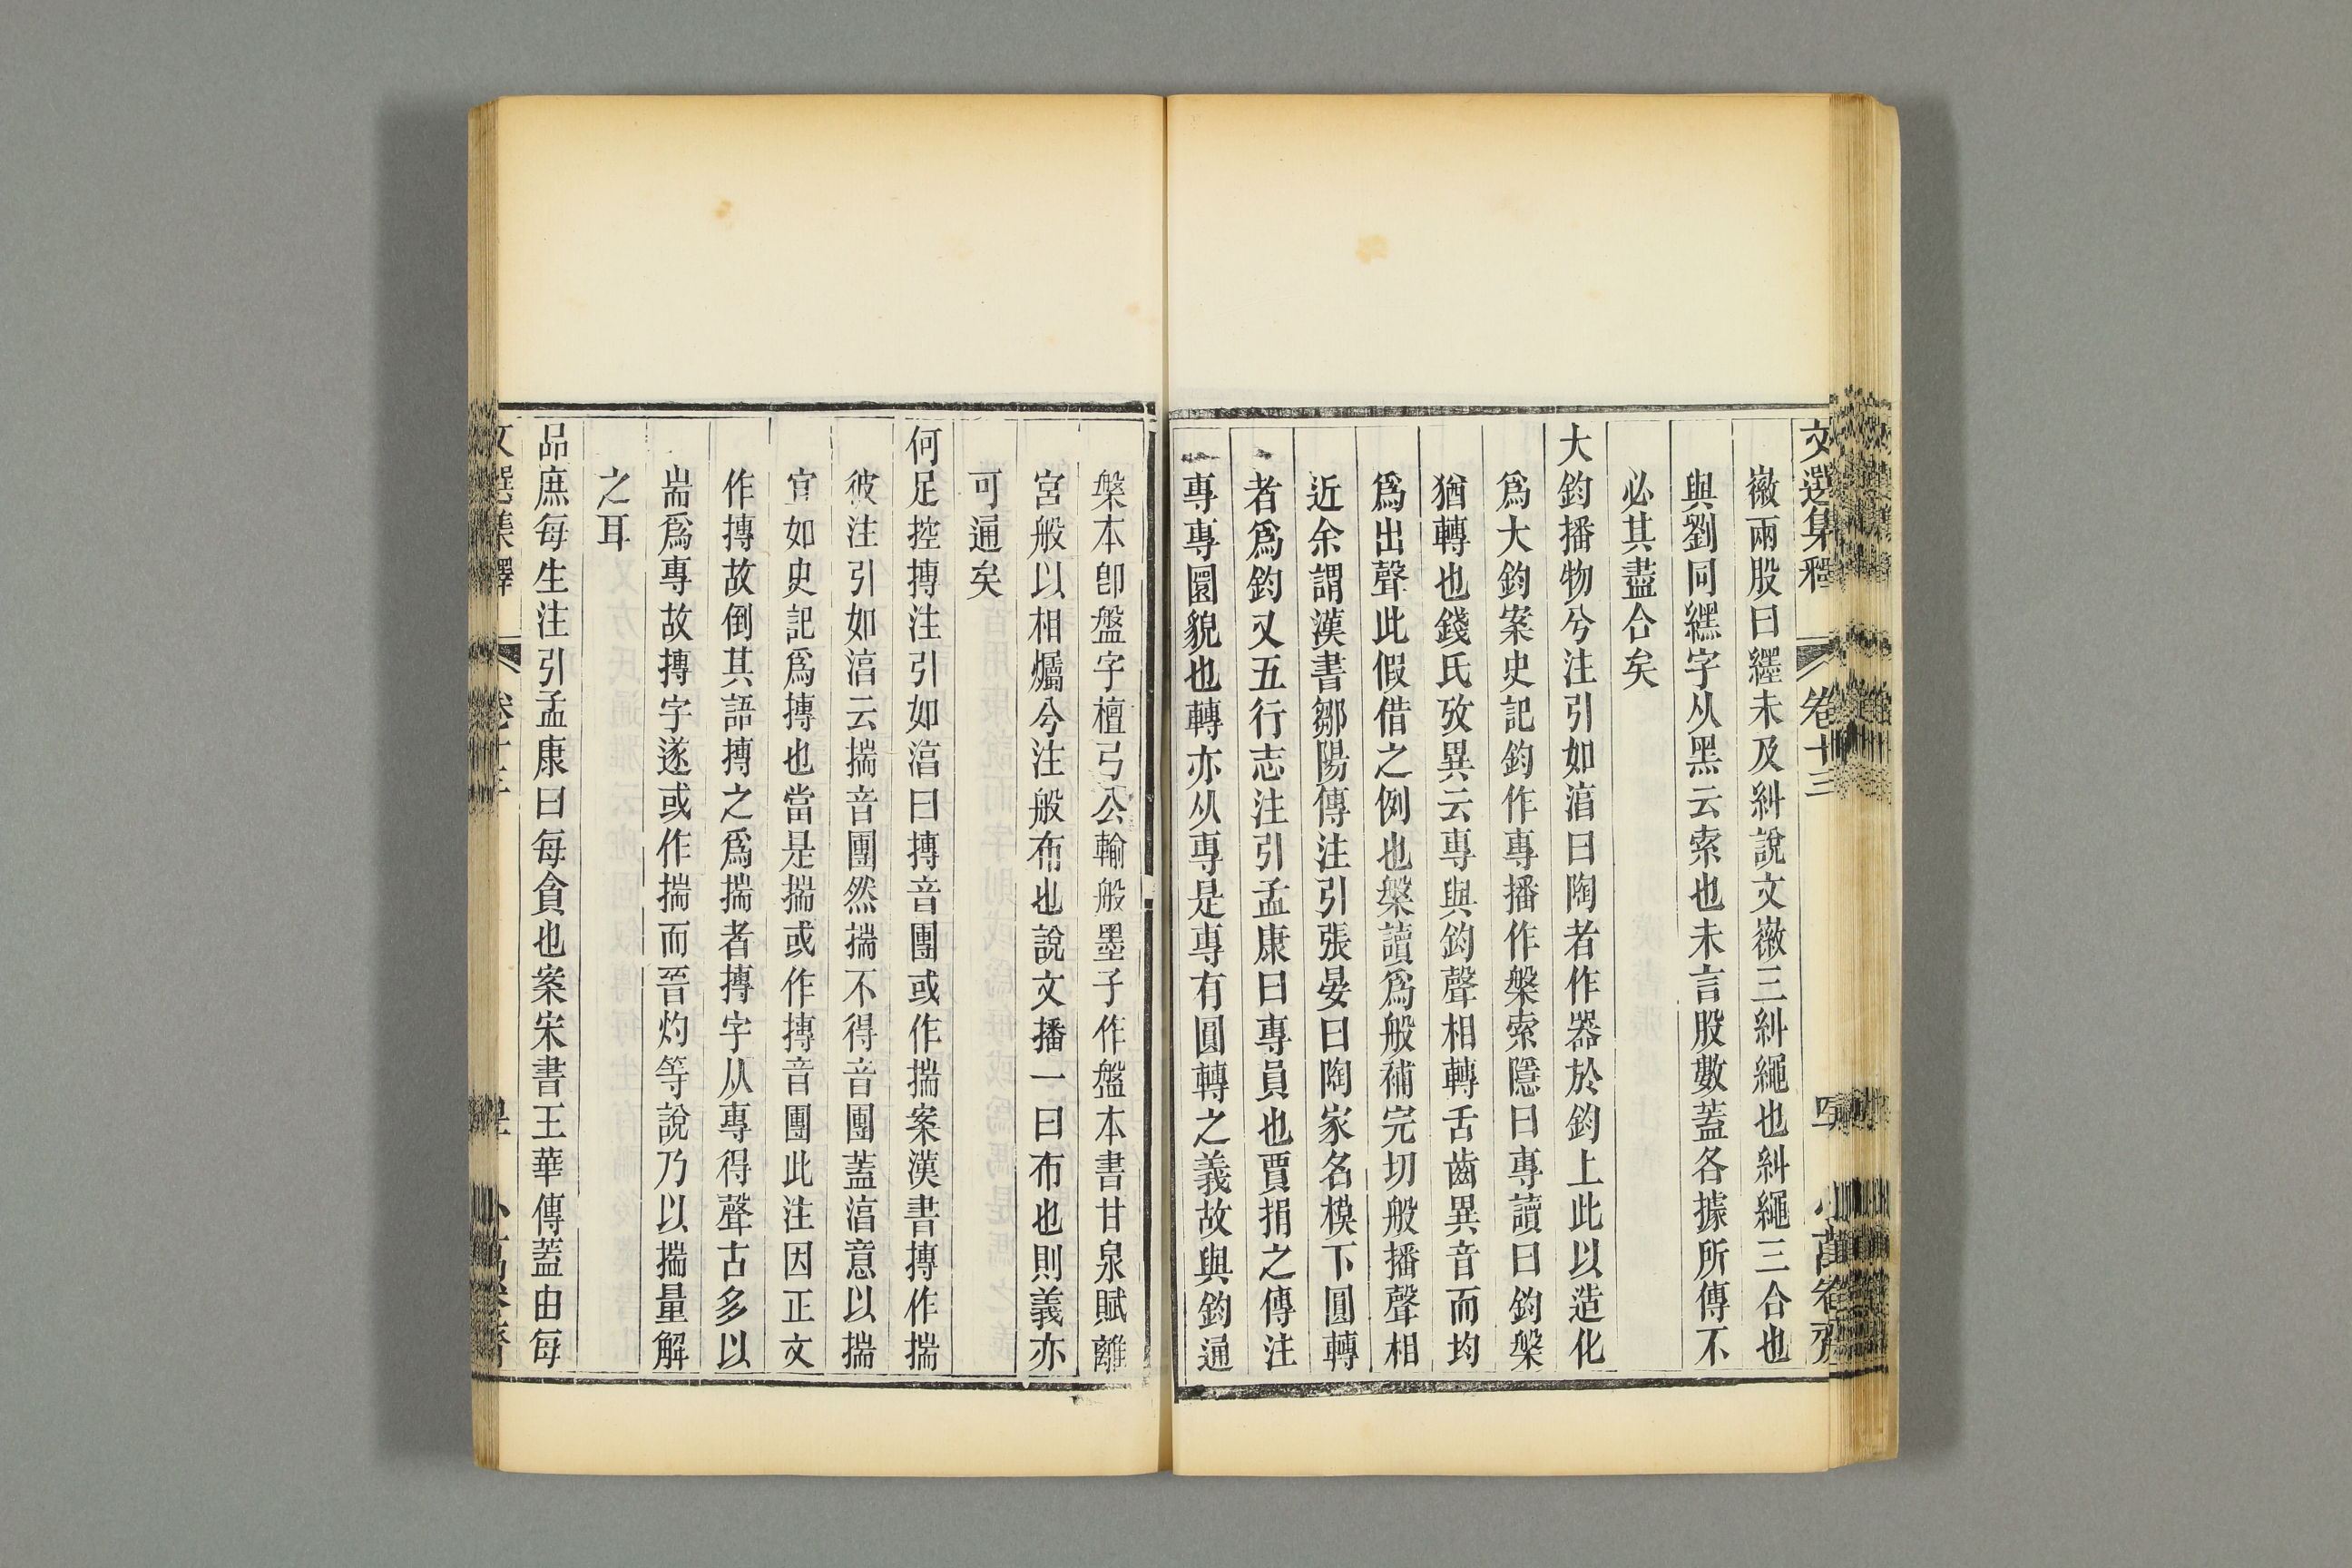 文選集釋 卷十三 小萬卷齋
徽兩股曰纆未及糾說文徽三糾繩也糾繩三合也
與劉同纆字从黑云索也未言股數蓋各據所傳不
必其盡合矣
大鈞播物兮注引如淳曰陶者作器於鈞上此以造化
爲大鈞案史記鈞作專播作槃索隱曰專讀曰鈞槃
猶轉也錢氏攷異云專與鈞聲相轉舌齒異音而均
爲出聲此假借之例也槃讀爲般補完切般播聲相
近余謂漢書鄒陽傳注引張晏曰陶家名模下圓轉
者爲鈞又五行志注引孟康曰專員也賈捐之傳注
專專圜貌也轉亦从專是專有圓轉之義故與鈞通
槃本卽盤字檀弓公輸般墨子作盤本書甘泉賦離
宮般以相爥兮注般布也說文播一曰布也則義亦
可通矣
何足控摶注引如淳曰摶音團或作揣案漢書摶作揣
彼注引如淳云揣音團然揣不得音團蓋淳意以揣
宜如史記爲摶也當是揣或作摶音團此注因正文
作摶故倒其語摶之爲揣者摶字从專得聲古多以
耑爲專故摶字遂或作揣而晉灼等說乃以揣量解
之耳
品庶每生注引孟康曰每貪也案宋書王華傳蓋由每
文選集釋 卷十三